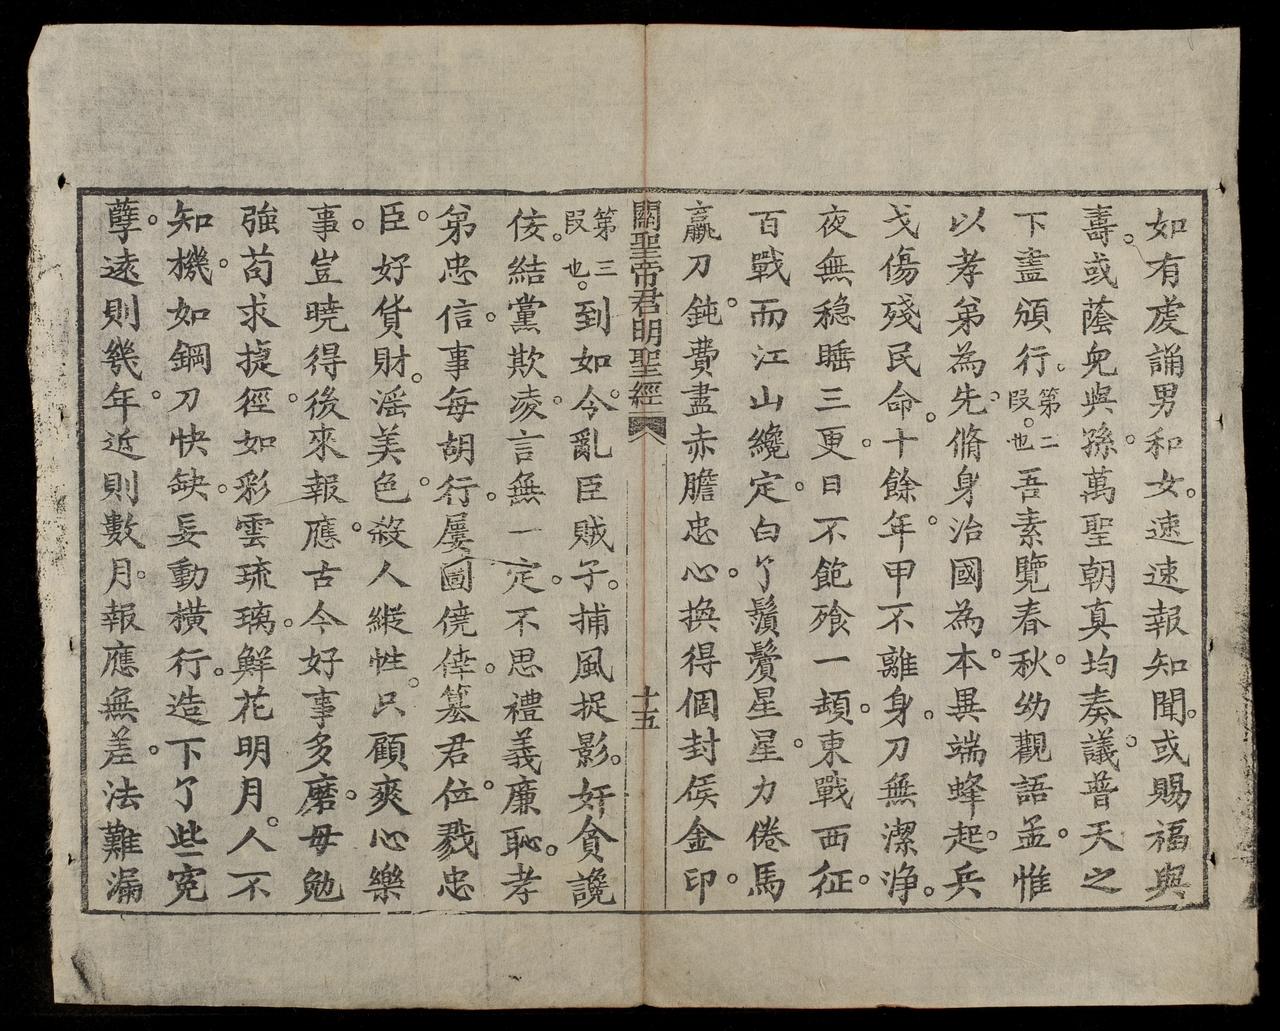 如有虔誦男和女。速速報知聞。或賜福與
壽。或蔭兒與孫。萬聖朝真均奏議。普天之
下盡頒行。第二段。也吾素覽春秋。幼觀語孟。惟
以孝弟為先。脩身治國為本。異端蜂起。兵
戈傷殘民命。十餘年。甲不離身。刀無潔淨。
夜無稳睡三更。日不飽飱一頓。東戰西征。
百戰而江山纔定。白了鬚鬢星星。力倦馬
羸刀鈍。費盡赤膽忠心。換得個封侯金印。
關聖帝君明聖經
十五
第三段也。到如今。亂臣賊子。捕風捉影。奸貪讒
佞。結黨欺凌。言無一定。不思禮義廉恥。孝
弟忠信。事每胡行。屢圖僥倖。篡君位。戮忠
臣。好貨財。滛美色。殺人縱性。只顧爽心樂
事。豈曉得後來報應。古今好事多磨。毋勉
強茍求捷徑。如彩雲琉璃。鮮花明月。人不
知機。如鋼刀快缺。妄動橫行。造下了些冤
孽。遠則幾年。近則數月。報應無差。法難漏